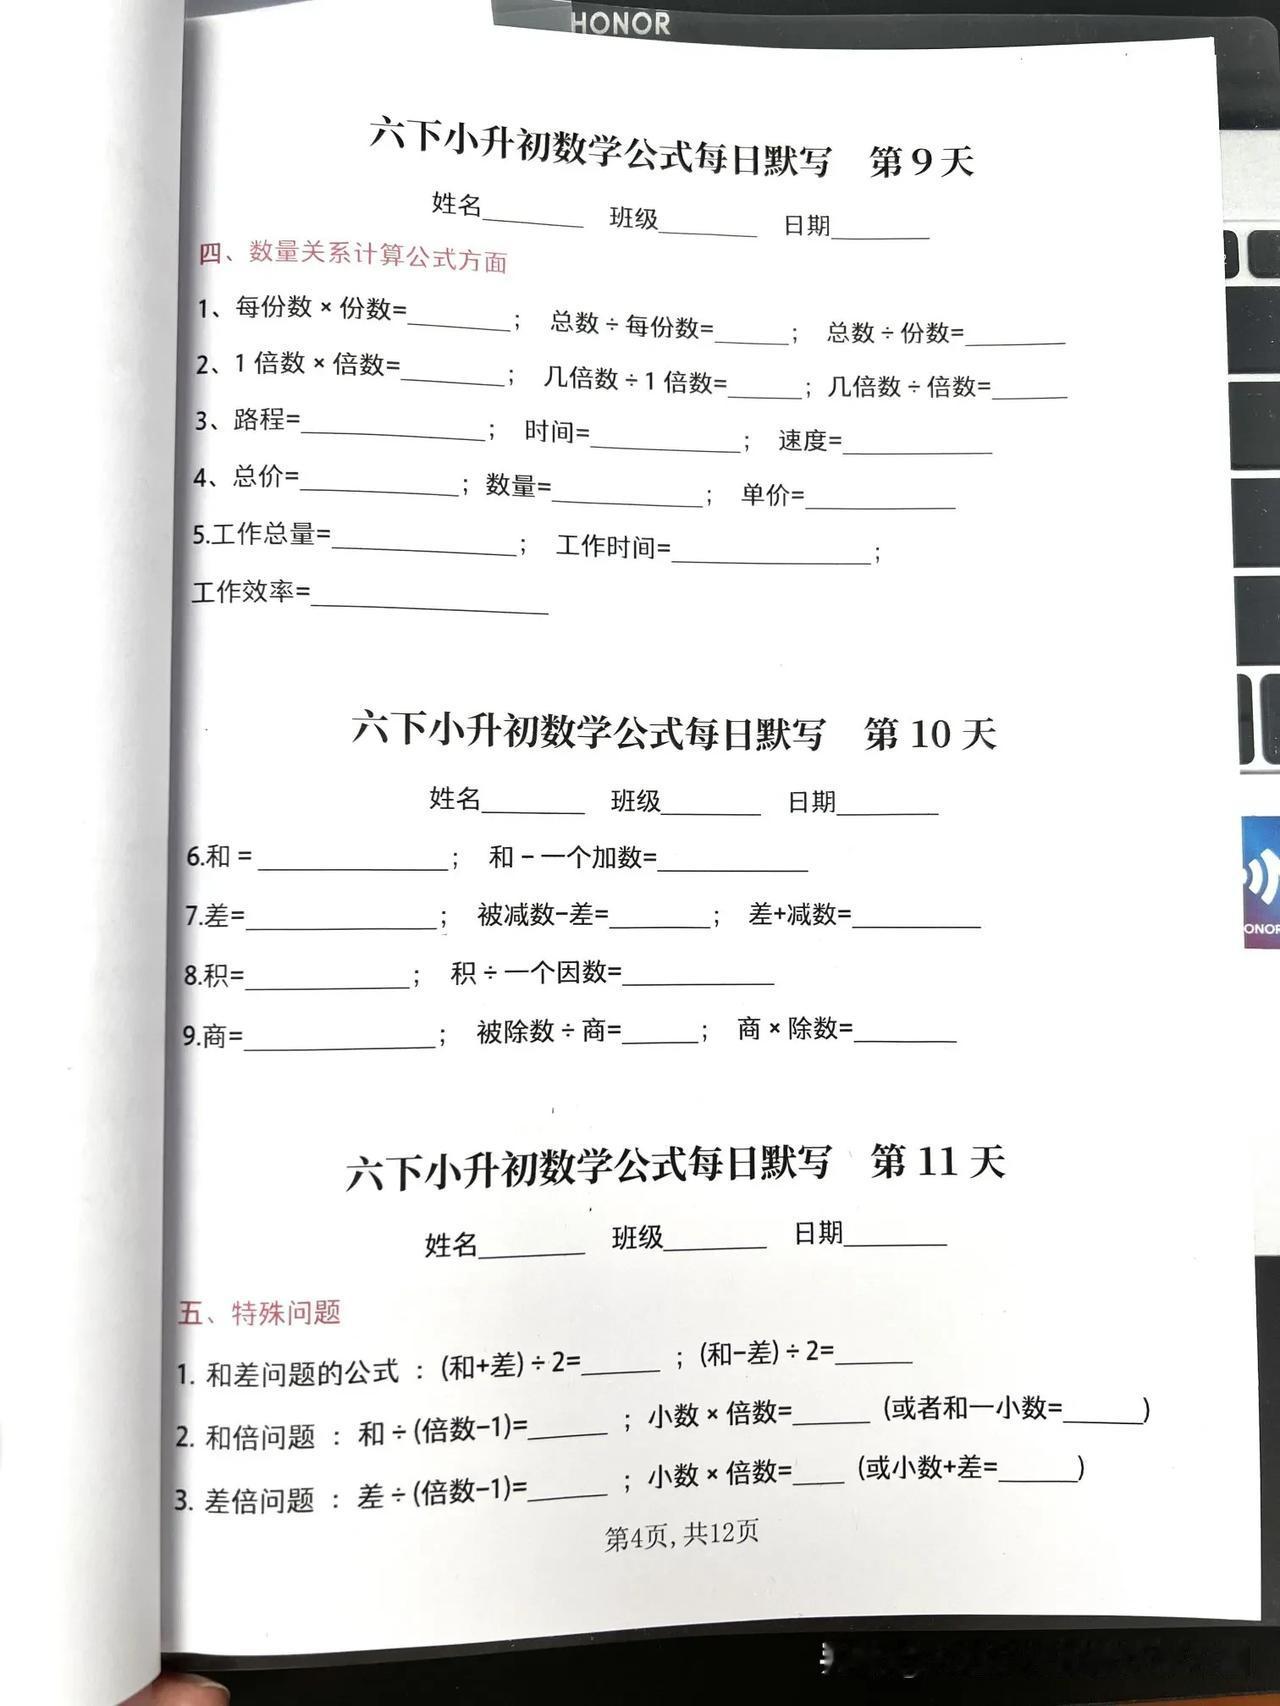 HONOR
六下小升初数学公式每日默写 第9天
姓名________ 班级________ 日期________
四、数量关系计算公式方面
1、每份数×份数=________； 总数÷每份数=______； 总数÷份数=________
2、1倍数×倍数=________； 几倍数÷1倍数=______；几倍数÷倍数=______
3、路程=______________； 时间=____________； 速度=____________
4、总价=____________；数量=____________； 单价=____________
5.工作总量=______________； 工作时间=________________；
工作效率=__________________
六下小升初数学公式每日默写 第10天
姓名________ 班级________ 日期________
6.和 =______________； 和－一个加数=____________
7.差=______________； 被减数−差=________； 差+减数=__________
8.积=____________； 积÷一个因数=____________
9.商=______________； 被除数÷商=______； 商×除数=________
ONOR
六下小升初数学公式每日默写 第11天
姓名________ 班级________ 日期________
五、特殊问题
1. 和差问题的公式 ：(和+差)÷2=______ ；(和−差)÷2=______
2. 和倍问题 ：和÷(倍数−1)=______ ；小数×倍数=______ (或者和一小数=______)
3. 差倍问题 ：差÷(倍数−1)=______ ；小数×倍数=____ (或小数+差=______)
第4页,共12页